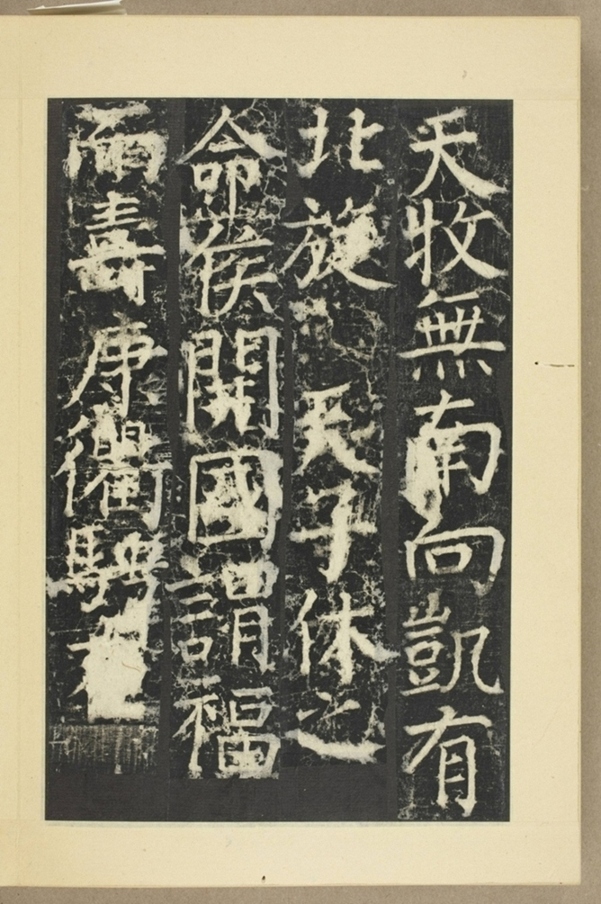 天牧無南向凱有
北旋 天子休之
命侯開國謂福
而壽康衢騁